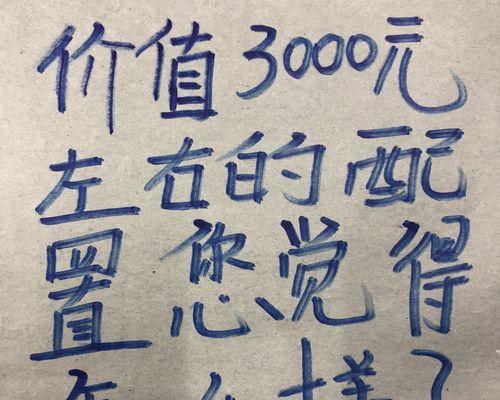 价值3000元
左右的配
置您觉得
怎么样?